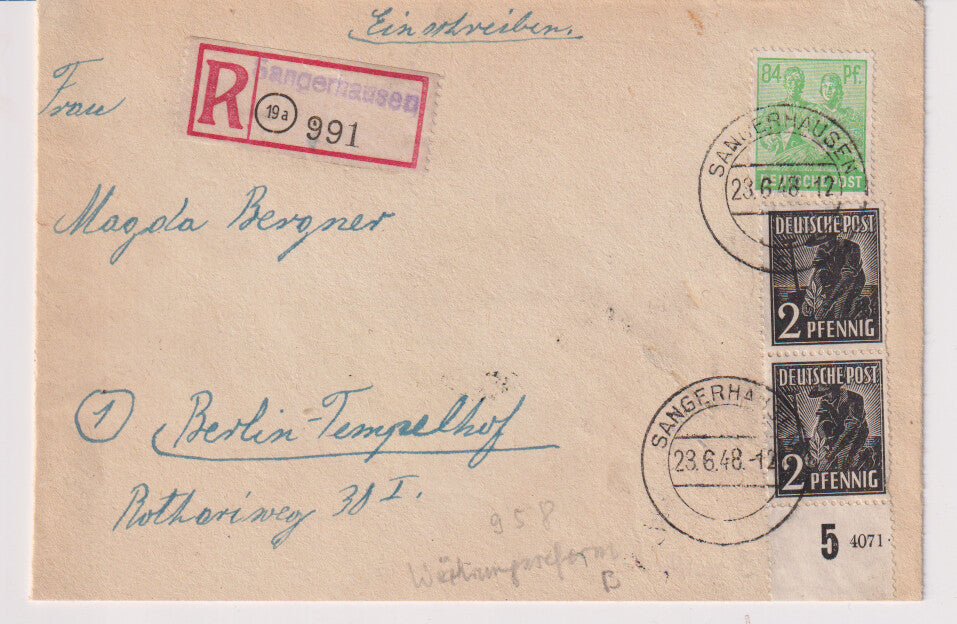 Einschreiben.
Frau
R
Sangerhausen
19a
991
84 Pf.
DEUTSCHE POST
SANGERHAUSEN
23.6.48.-12
Magda Bergner
DEUTSCHE POST
2 PFENNIG
DEUTSCHE POST
2 PFENNIG
SANGERHA
23.6.48.-12
1 Berlin-Tempelhof
Rothariweg 30 I.
5 4071
958
Währungsreform
B